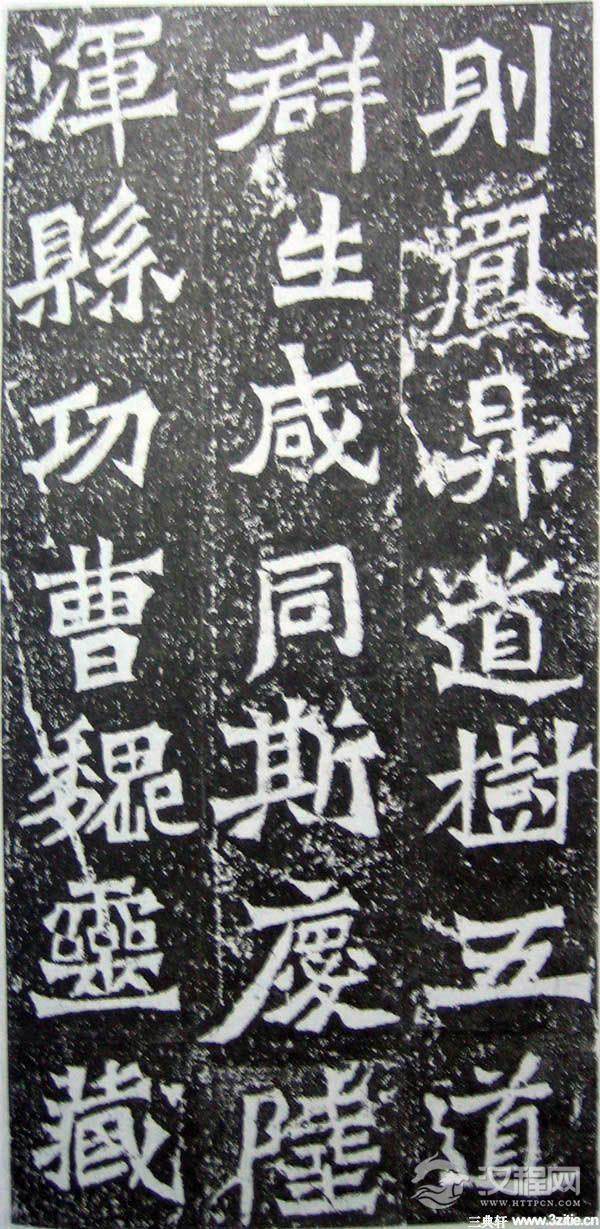 則鳳昇道樹五道
群生咸同斯慶陸
渾縣功曹魏靈藏
汉程网
WWW.HTTPCN.COM
三典轩 www.3zitie.cn